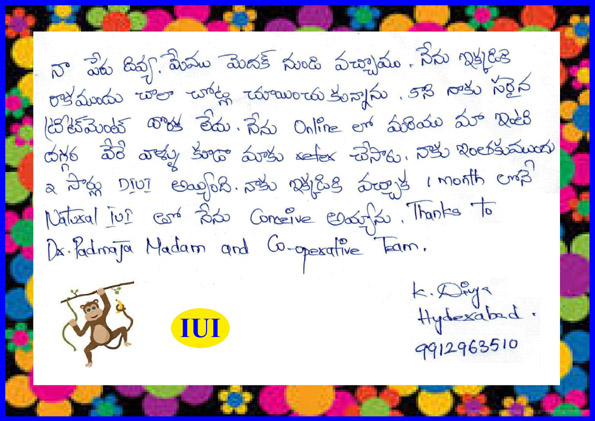 నా పేరు దివ్య. మేము మెదక్ నుండి వచ్చాము. నేను ఇక్కడికి
రాకముందు చాలా చోట్ల చూయించుకున్నాను. కాని నాకు సరైన
ట్రీట్‌మెంట్ దొరక లేదు. నేను Online లో మరియు మా ఇంటి
దగ్గర వేరే వాళ్ళు కూడా మాకు refer చేసారు. నాకు ఇంతకుముందు
2 సార్లు DIUI అయ్యింది. నాకు ఇక్కడికి వచ్చాక 1 month లోనే
Natural IUI తో నేను Conceive అయ్యాను. Thanks to
Dr. Padmaja Madam and Co-operative Team.
IUI
K. Divya
Hyderabad.
9912963510